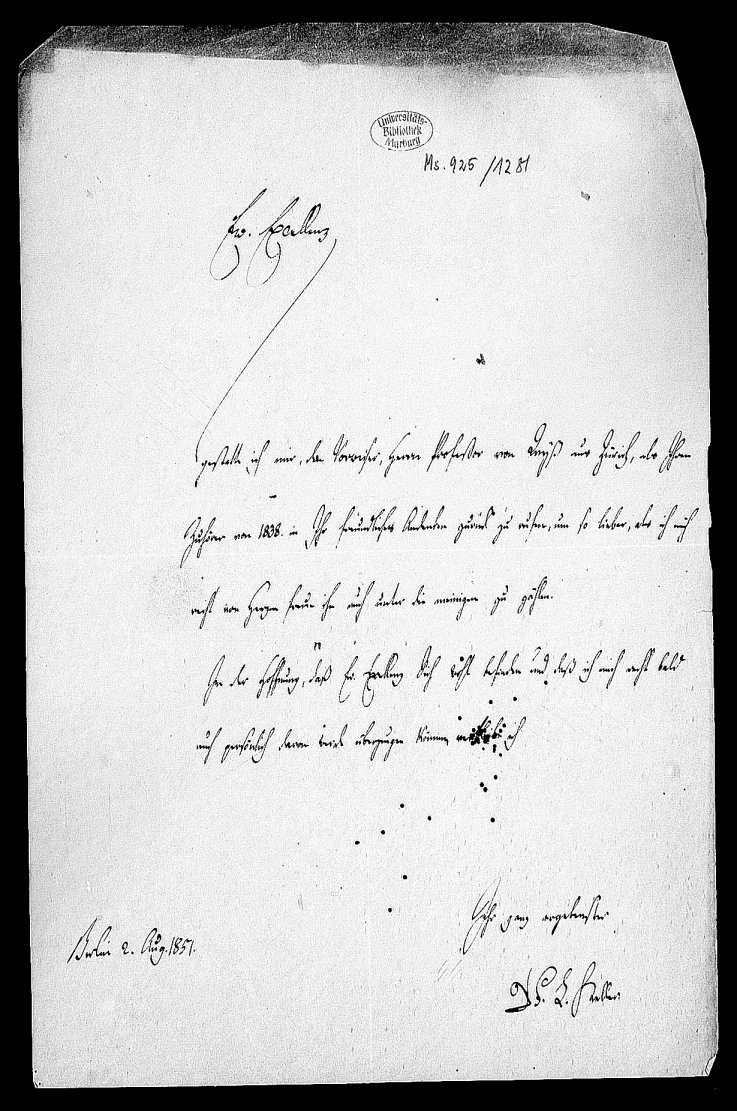 Universitäts-
Bibliothek
Marburg
Ms. 925/1281
Ew. Excellenz
gestatte ich mir, den Vorweiser, Herrn Professor von Wyß aus Zürich, als Ihren
Zuhörer von 1838. in Ihr freundliches Andenken zurück zu rufen, um so lieber, als ich mich
recht von Herzen freue ihn auch unter die meinigen zu zählen.
In der Hoffnung, daß Ew. Excellenz Sich wohl befinden und daß ich mich recht bald
auch persönlich davon werde überzeugen können, verbleibe ich
Ihr ganz ergebenster
Berlin 2. Aug. 1851.
Dr. F. L. Keller